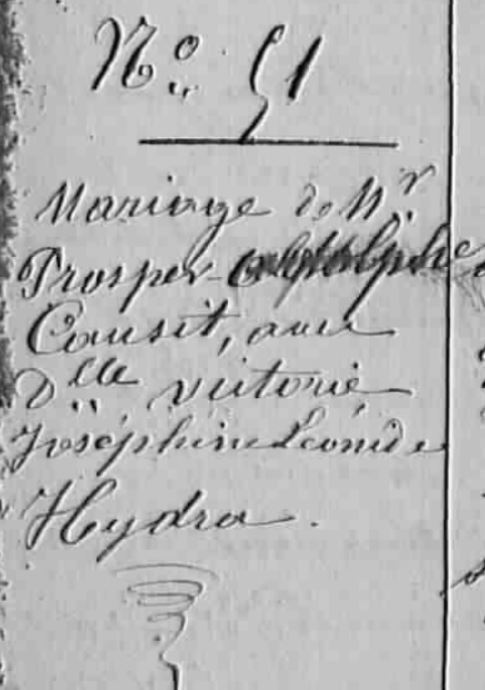 No 51
Mariage de Mr
Prosper
Causit, avec
Dlle victorie
Joséphine Léonide
Hydra.